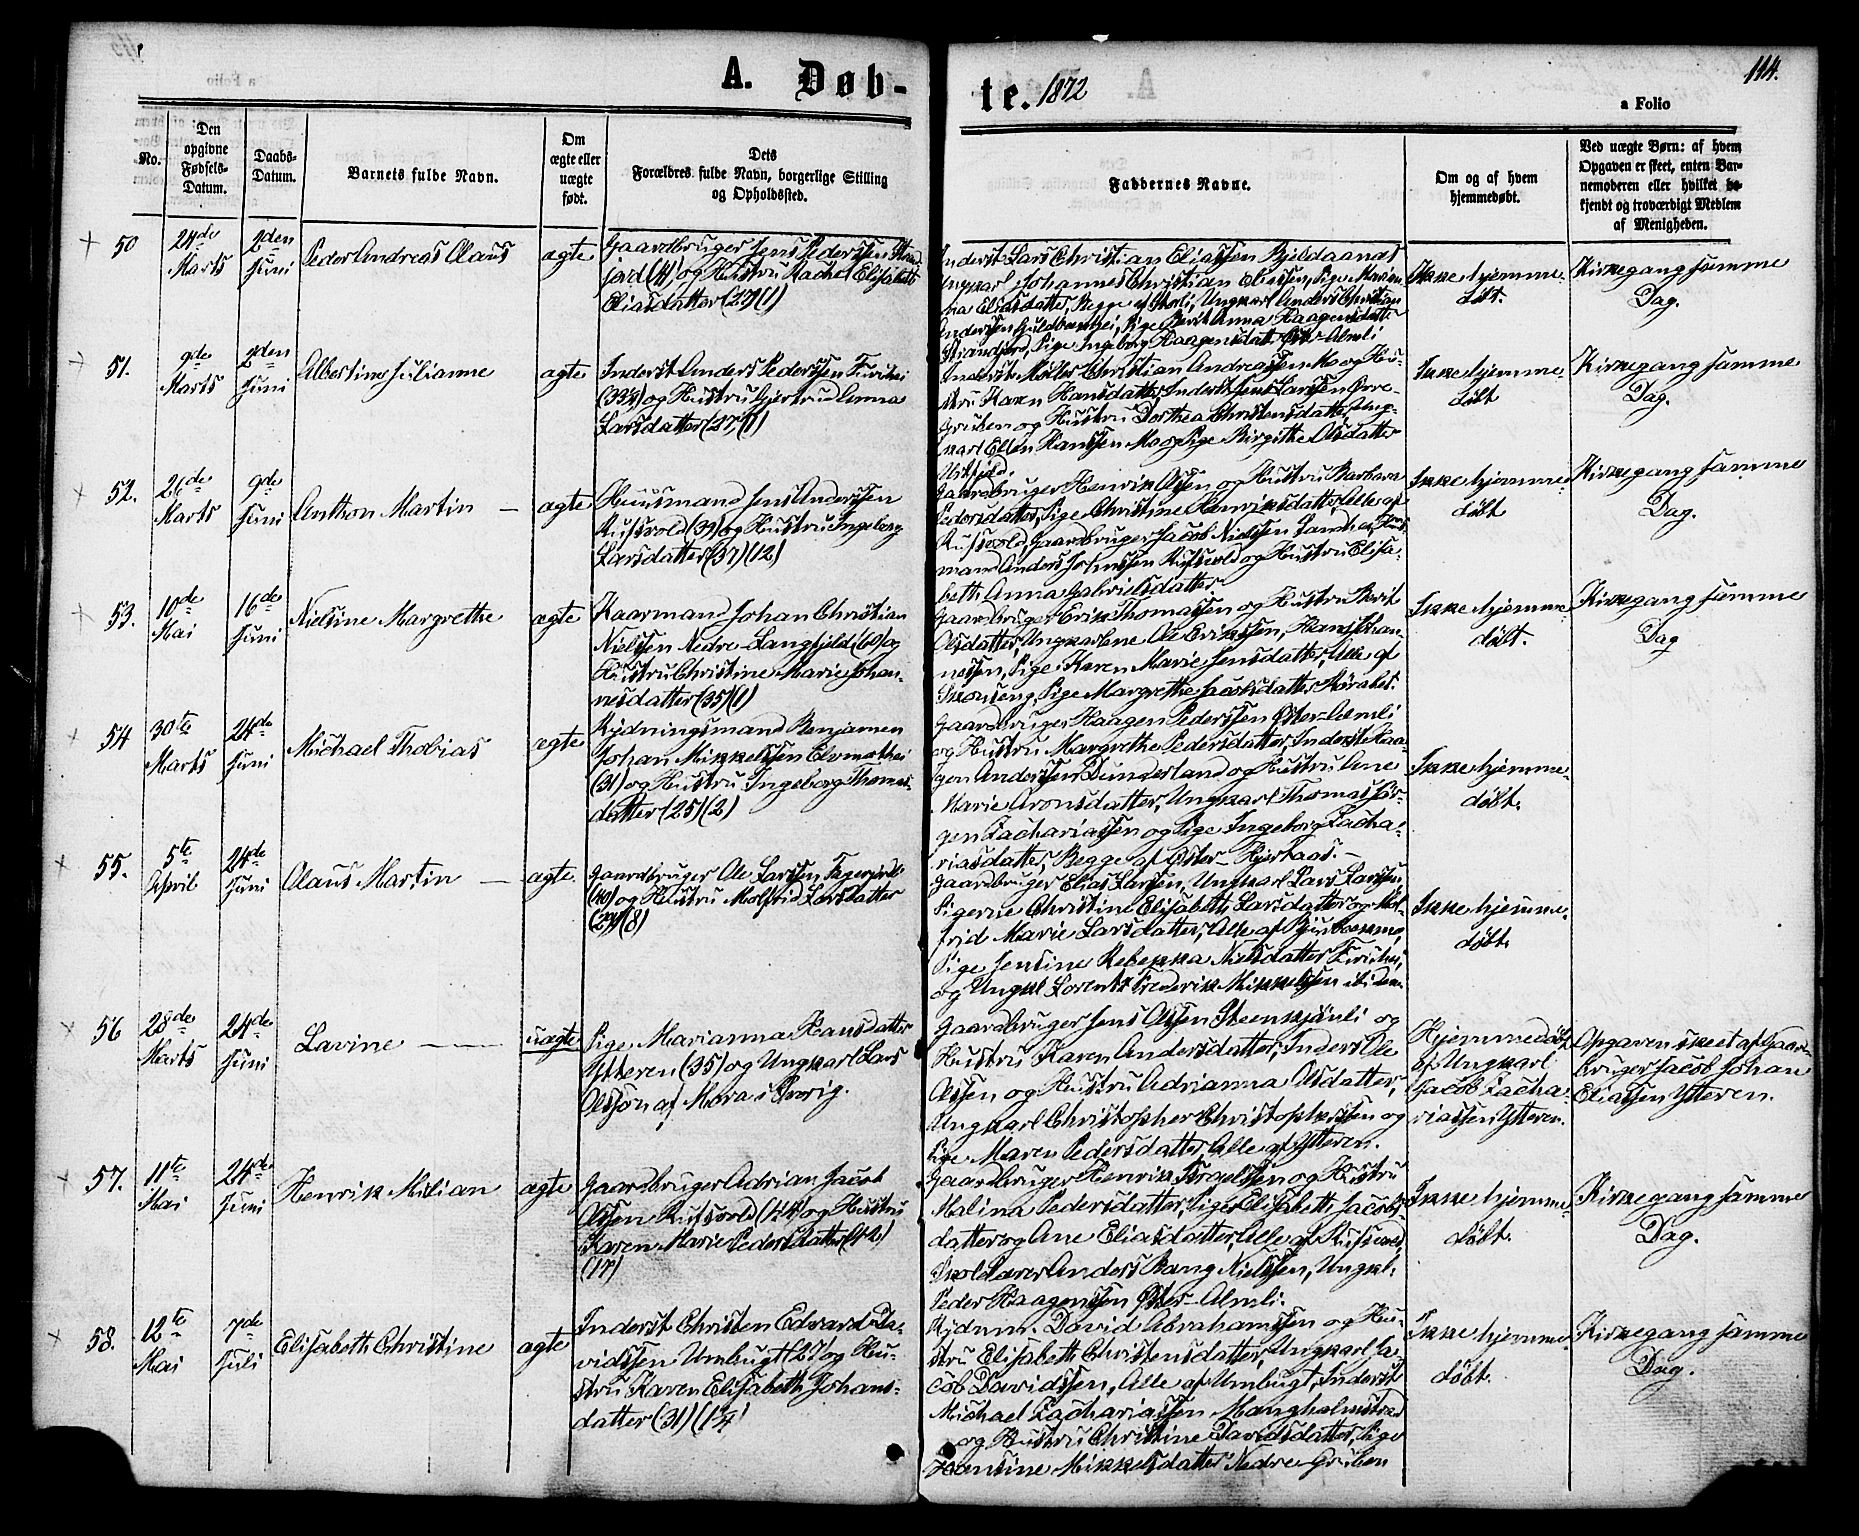 A. Døb-
te. 1872
114.
a Folio
No.
Den
opgivne
Fødsels-
Datum.
Daabs-
Datum.
Barnets fulde Navn.
Om
ægte eller
uægte
født.
Dets
Forældres fulde Navn, borgerlige Stilling
og Opholdssted.
Faddernes Navne.
Om og af hvem
hjemmedøbt.
Ved uægte Børn: af hvem
Opgaven er skeet, enten Bar-
nemoderen eller hvilket be-
kjendt og troværdigt Medlem
af Menigheden.
50
24de
Marts
2den
Juni
Peder Andreas Olaus
ægte
Gaardbruger Jens Pederssen
og Hustru Rachel Elisabeth
Eliasdatter (27) (1)
Inderst Lars Christian Eliassen
Ungkarl Johannes Christian Eliassen, Pige Marian-
na Eliasdatter, Begge af Ungkarl Anders Christian
Anderssen Pige Berit Anna Haagensdatter
Pige Ingeborg Haagensdatter Øster-Almli
Ikke hjemme-
døbt.
Kirkegang samme
Dag.
51.
9de
Marts
2den
Juni
Albertine Julianne
ægte
Inderst Anders Pederssen
(33½) og Hustru Gjertrud Anna
Larsdatter (27) (1)
Inderst Möller Christian Andreassen Mo og Hu-
stru Karen Hansdatter, Inderst Jens Larssen Øvre
Gruben og Hustru Dorthea Christensdatter, Ung-
karl Ellen Hanssen Mo og Pige Birgitte Olsdatter
Ikke hjemme-
døbt
Kirkegang samme
Dag.
52.
Marts
9de
Juni
Anthon Martin —
ægte
Huusmand Jens Anderssen
Rufsvold (39) og Hustru Ingeborg
Larsdatter (37) (12)
Gaardbruger Henrik Olssen og Hustru Barbara
Pedersdatter, Pige Christine Henriksdatter, Alle af
Rufsvold, Gaardbruger Jacob Nielssen
mand Anders Johnssen Rufsvold og Hustru Elisa-
beth Anna Gabrielsdatter
Ikke hjemme-
døbt
Kirkegang samme
Dag.
53.
10de
Mai
16de
Juni
Nielsine Margrethe
ægte
Kaarmand Johan Christian
Nielssen Nedre-Langfjeld (60) og
Hustru Christine Marie Johan-
nesdatter (35) (1)
Gaardbruger Erik Thomassen og Hustru Berit
Olsdatter, Ungkarlene Ole Erikssen, Hans Johan-
nessen, Pige Karen Marie Jensdatter, Alle af
Skonseng, Pige Margrethe Jacobsdatter
Ikke hjemme-
døbt.
Kirkegang samme
Dag
54
30te
Marts
24de
Juni
Michael Thobias
ægte
Rydningsmand Benjamen
Johan Mikkelssen
(31) og Hustru Ingeborg Thomas-
datter (25) (2)
Gaardbruger Haagen Pederssen Øster-Almli
og Hustru Margrethe Pedersdatter, Inderst Haa-
gen Anderssen Dunderland og Hustru Ane
Marie Aronsdatter, Ungkarl Thomas Jör-
gen Zachariassen og Pige Ingeborg Zacha-
riasdatter, Begge af Øster-Hjertaas. —
Ikke hjemme-
døbt.
55.
5te
April
24de
Juni
Olaus Martin —
ægte.
Gaardbruger Ole Larssen
(40) og Hustru Molfrid Larsdatter
(8)
Gaardbruger Elias Larssen, Ungkarl Lars Larssen,
Pigerne Christine Elisabeth Larsdatter og Mol-
frid Marie Larsdatter, Alle af
Pige Jensine Rebekka Nielsdatter
og Ungkl Lorentz Frederik Mikkelssen ibidem
Ikke hjemme-
døbt.
56
28de
Marts
24de
Juni
Lavine — —
uægte
Pige Marianna Hansdatter
Ytteren (35) og Ungkarl Lars
Olssøn af Mora i Sverig.
Gaardbruger Jens Olssen Steenkjønli og
Hustru Karen Andersdatter, Inders Ole
Olssen og Hustru Adrianna Olsdatter,
Ungkarl Christopher Christopherssen og
Pige Maren Pedersdatter, Alle af Ytteren.
Hjemmedøbt
af Ungkarl
Jacob Zacha-
riassen Ytteren.
Opgaven skeet af Gaard-
bruger Jacob Johan
Eliassen Ytteren.
57.
11te
Mai
24de
Juni
Henrik Milian
ægte
Gaardbruger Adrian Jacob
Olssen Rufsvold (44) og Hustru
Karen Marie Pedersdatter (42)
(17)
Gaardbruger Henrik Israelssen og Hustru
Malina Pedersdatter, Piger Elisabeth Jacobs-
datter og Ane Eliasdatter, Alle af Rufsvold,
Skolelærer Anders Bang Nielssen, Ungkl.
Peder Haagenssen Øster-Almli.
Ikke hjemme-
døbt.
Kirkegang samme
Dag.
58.
12te
Mai
7de
Juli
Elisabeth Christine
ægte
Inderst Christen Edvard Da-
vidssen Umbugt (27) og Hu-
stru Karen Elisabeth Johans-
datter (31) (1¼)
Rydnm. David Abrahamssen og Hu-
stru Elisabeth Christensdatter, Ungkarl Ja-
cob Davidssen, Alle af Umbugt, Inderst
Michael Zachariassen Mangholmstrad
og Hustru Christine Davidsdatter, Pige
Jensine Mikkelsdatter Nedre Gruben
Ikke hjemme-
døbt.
Kirkegang samme
Dag.